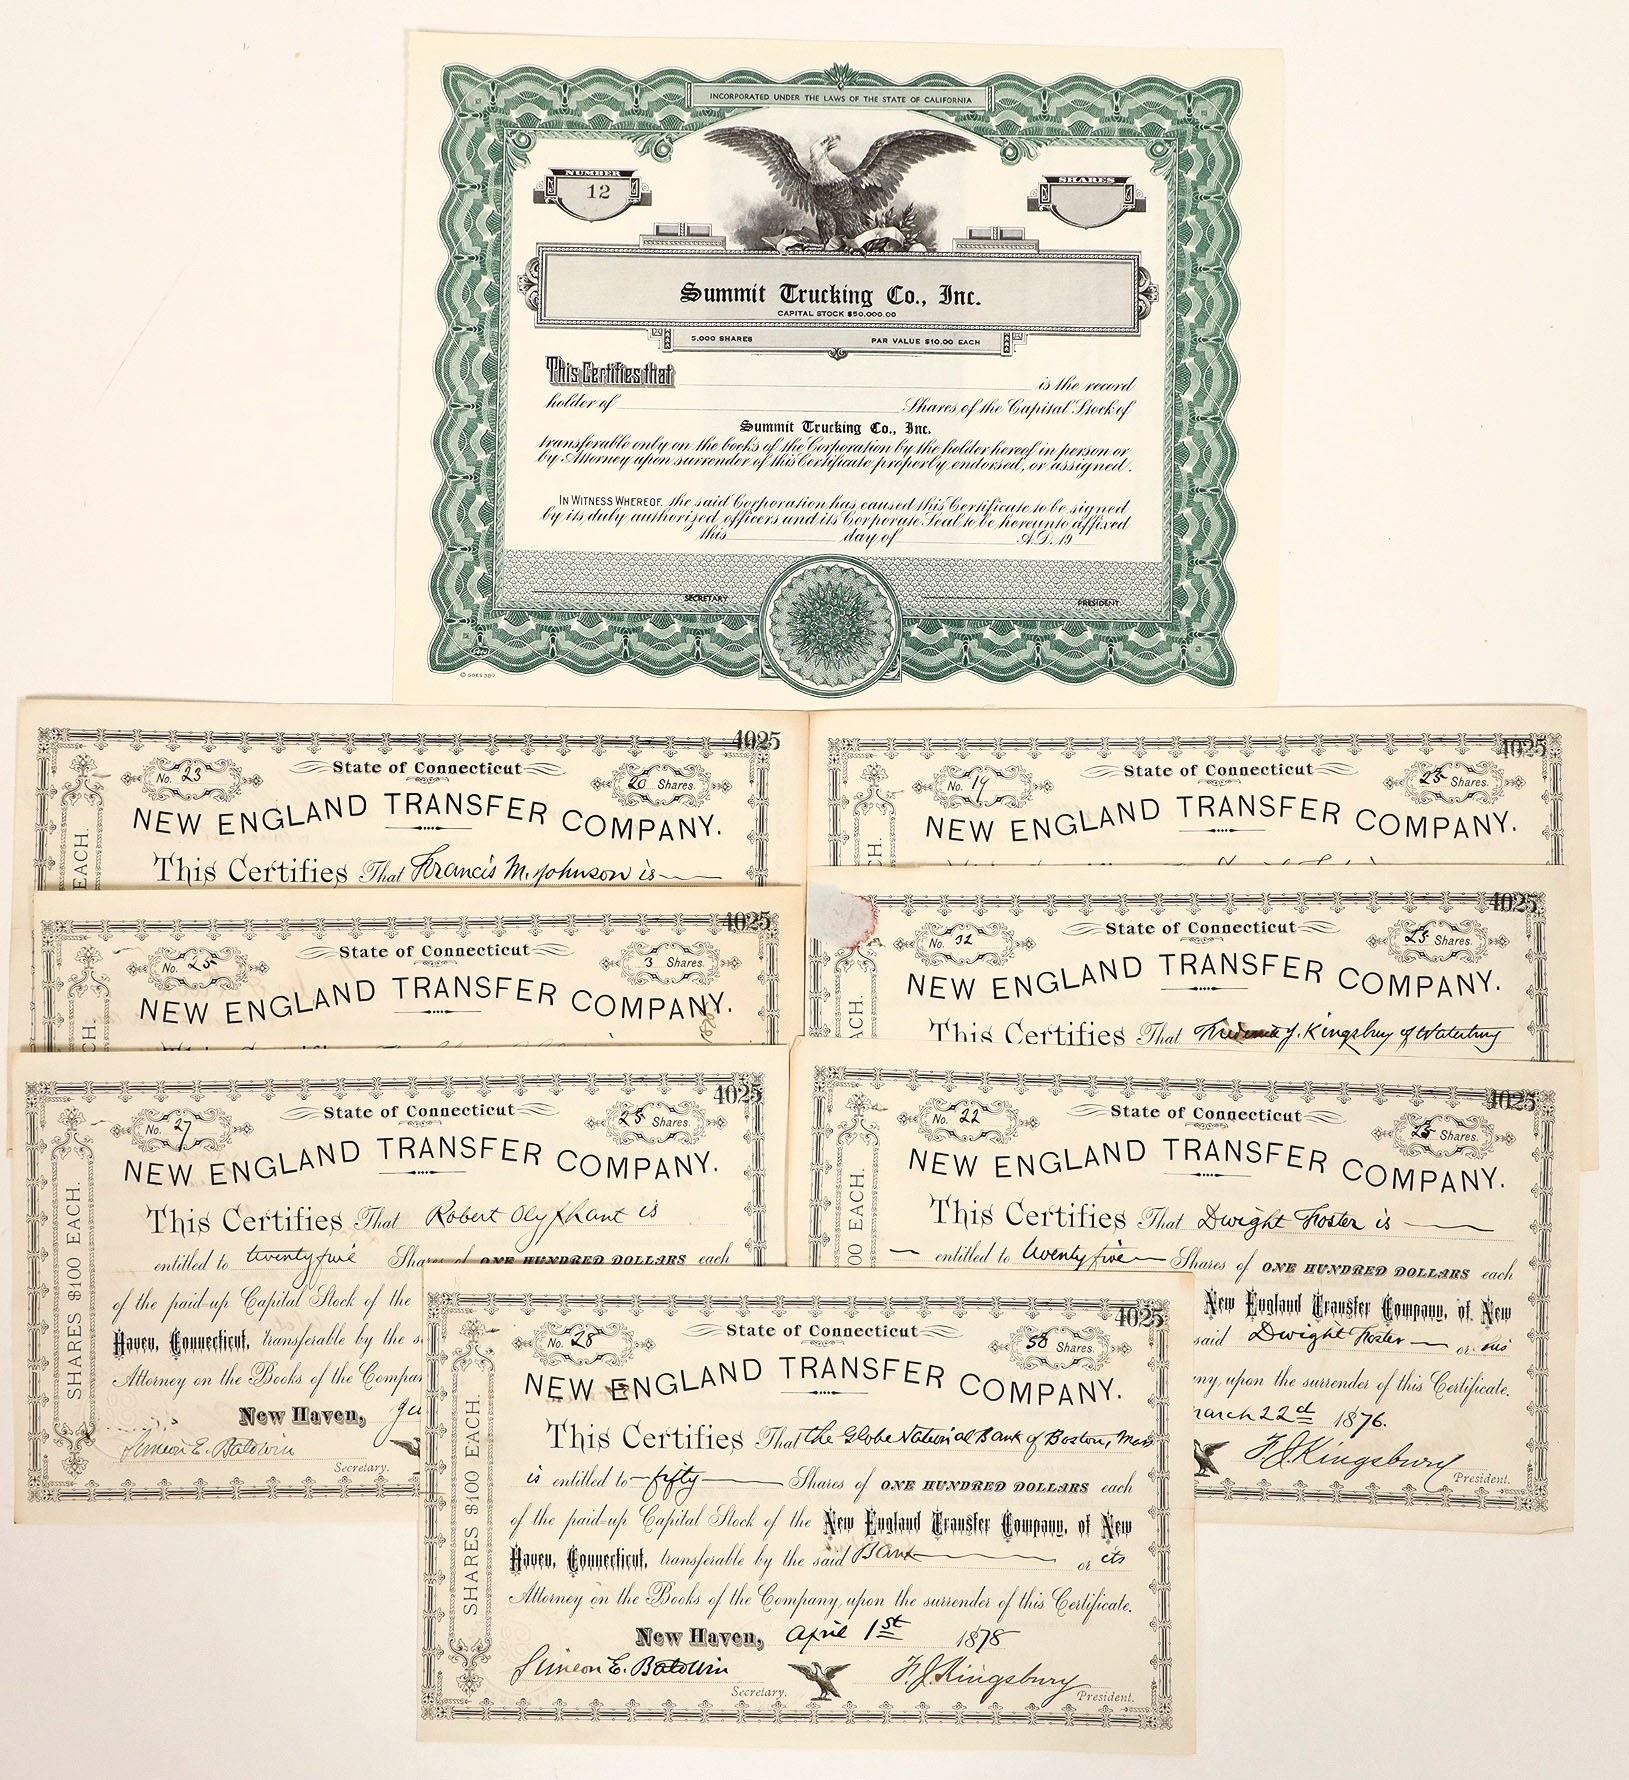 INCORPORATED UNDER THE LAWS OF THE STATE OF CALIFORNIA
NUMBER
12
SHARES
Summit Trucking Co., Inc.
CAPITAL STOCK $50,000.00
5,000 SHARES PAR VALUE $10.00 EACH
This Certifies that is the record
holder of Shares of the Capital Stock of
Summit Trucking Co., Inc.
transferable only on the books of the Corporation by the holder hereof in person or
by Attorney upon surrender of this Certificate properly endorsed, or assigned.
IN WITNESS WHEREOF, the said Corporation has caused this Certificate to be signed
by its duly authorized officers and its Corporate Seal to be hereunto affixed
this day of A.D. 19
SECRETARY PRESIDENT
© GOES 389
4025
No. 23 State of Connecticut 20 Shares.
NEW ENGLAND TRANSFER COMPANY.
This Certifies That Francis M. Johnson is
EACH.
4025
No. 19 State of Connecticut 25 Shares.
NEW ENGLAND TRANSFER COMPANY.
4025
No. 25 State of Connecticut 3 Shares.
NEW ENGLAND TRANSFER COMPANY.
4025
No. 32 State of Connecticut 25 Shares.
NEW ENGLAND TRANSFER COMPANY.
This Certifies That Frederick J. Kingsbury of Waterbury
4025
No. 27 State of Connecticut 25 Shares.
NEW ENGLAND TRANSFER COMPANY.
This Certifies That Robert Olyphant is
entitled to twenty five Shares of ONE HUNDRED DOLLARS each
of the paid-up Capital Stock of the
Haven, Connecticut, transferable by the s
Attorney on the Books of the Compa
New Haven,
Simeon E. Baldwin
Secretary.
SHARES $100 EACH.
4025
No. 22 State of Connecticut 25 Shares.
NEW ENGLAND TRANSFER COMPANY.
This Certifies That Dwight Foster is
entitled to twenty five Shares of ONE HUNDRED DOLLARS each
New England Transfer Company, of New
said Dwight Foster or his
ny, upon the surrender of this Certificate.
March 22d 1876.
F. J. Kingsbury
President.
00 EACH.
4025
No. 28 State of Connecticut 50 Shares.
NEW ENGLAND TRANSFER COMPANY.
This Certifies That the Globe National Bank of Boston, Mass
is entitled to fifty Shares of ONE HUNDRED DOLLARS each
of the paid-up Capital Stock of the New England Transfer Company, of New
Haven, Connecticut, transferable by the said Bank or its
Attorney on the Books of the Company, upon the surrender of this Certificate.
New Haven, April 1st 1878
Simeon E. Baldwin F. J. Kingsbury
Secretary. President.
SHARES $100 EACH.